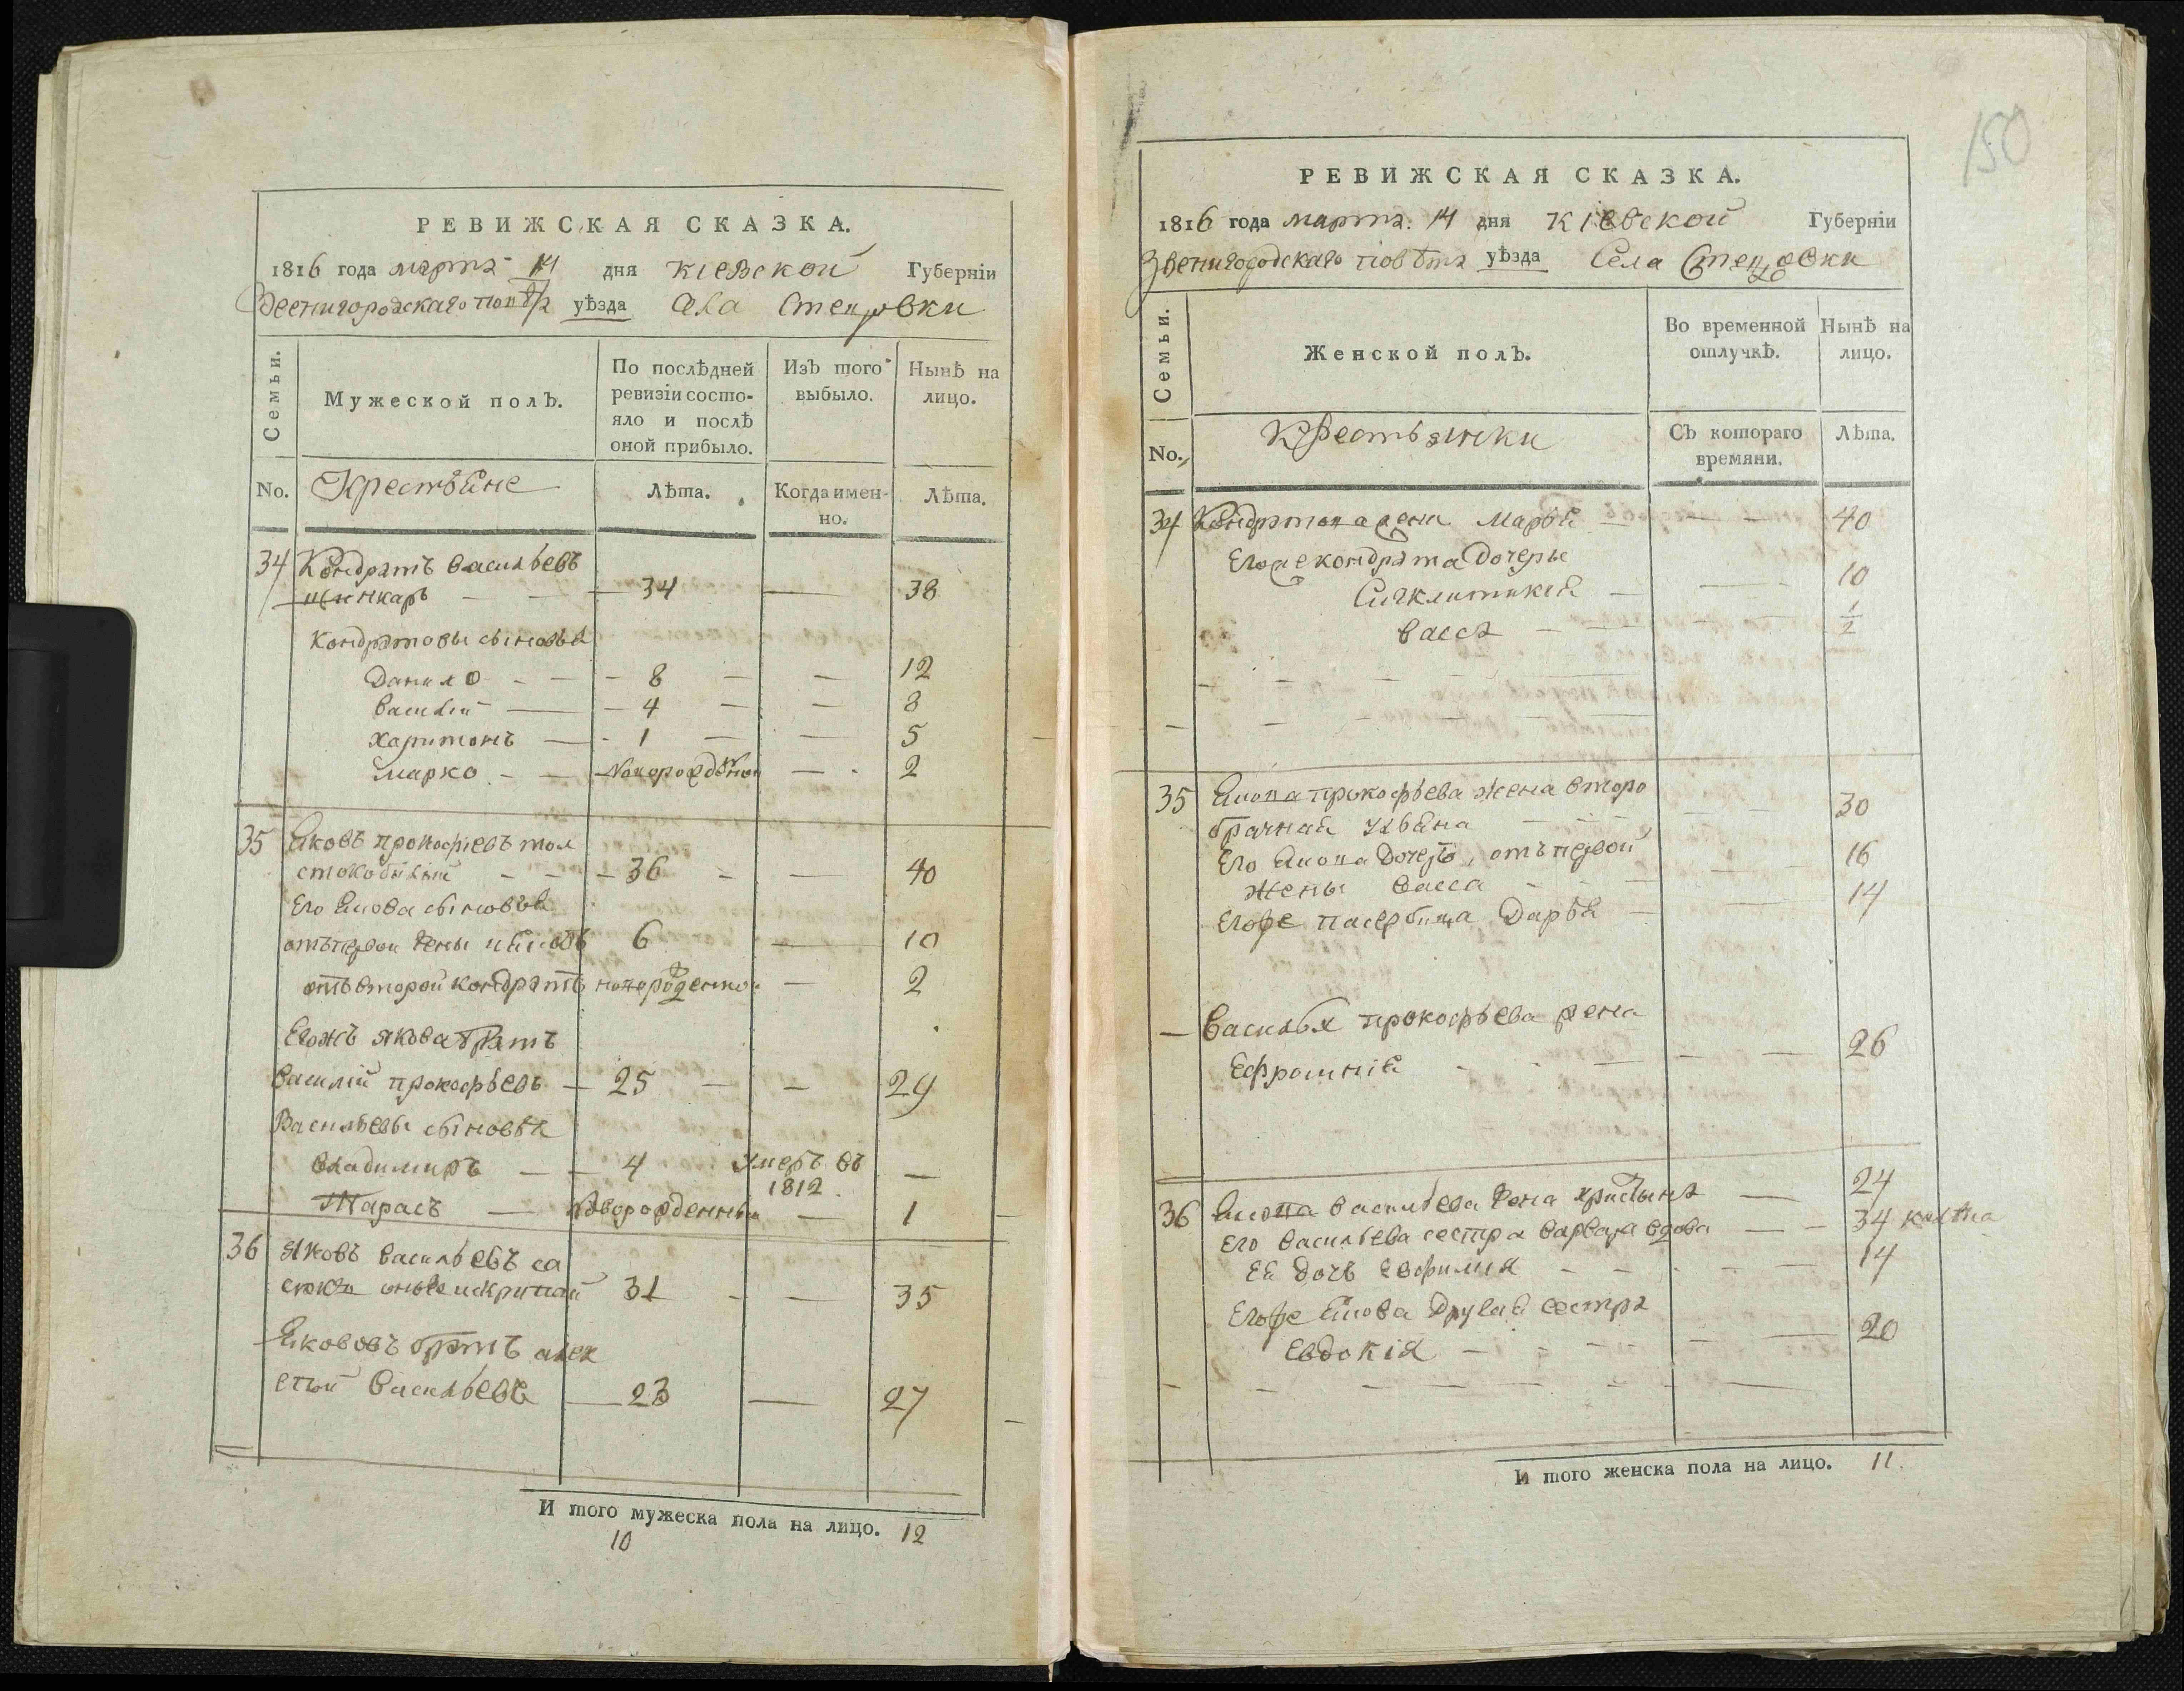 РЕВИЖСКАЯ СКАЗКА.
1816 года марта 14 дня Кіевской Губерніи
уѣзда Села Стецовки
Семьи.
Мужеской полЪ.
По послѣдней
ревизіи состо-
яло и послѣ
оной прибыло.
ИзЪ того
выбыло.
Нынѣ на
лицо.
No.
Крестьяне
Лѣта.
Когда имен-
но.
Лѣта.
34 Кондратъ Васильевъ
шинкаръ 34 38
Кондратовы сыновья
Данило 8 12
Василій 4 8
Харитонъ 1 5
Марко 2
35 Яковъ Прокофіевъ тол
36 40
Его Якова сыновья
отъ первой жены 6 10
отъ второй Кондратъ 2
Егожъ Якова братъ
Василій Прокофьевъ 25 29
Васильевы сыновья
Владимиръ 4 умеръ въ
1812
Тарасъ новорожденный 1
36 Яковъ Васильевъ
31 35
Яковovъ братъ алек
сѣй Васильевъ 23 27
И того мужеска пола на лицо. 12
10
150
РЕВИЖСКАЯ СКАЗКА.
1816 года марта 14 дня Кіевской Губерніи
Звенигородскаго повѣта уѣзда Села Стецовки
Семьи.
Женской полЪ.
Во временной
отлучкѣ.
Нынѣ на
лицо.
No.
Крестьянки
СЪ котораго
времяни.
Лѣта.
34 Кондратова жена Марья 40
Егоже Кондрата дочеры
10
Васса 1/2
35 Якова Прокофьева жена второ
брачная Ульяна 30
Его Якова дочерь, отъ первой 16
жены Васса
Егоже пасербица Дарья 14
Василья Прокофьева жена
26
36 Якова Васильева жена 24
Его Васильева сестра Варвара вдова 34
Ея дочь Евфимія 14
Егоже Якова другая сестра
Евдокія 20
И того женска пола на лицо. 11.